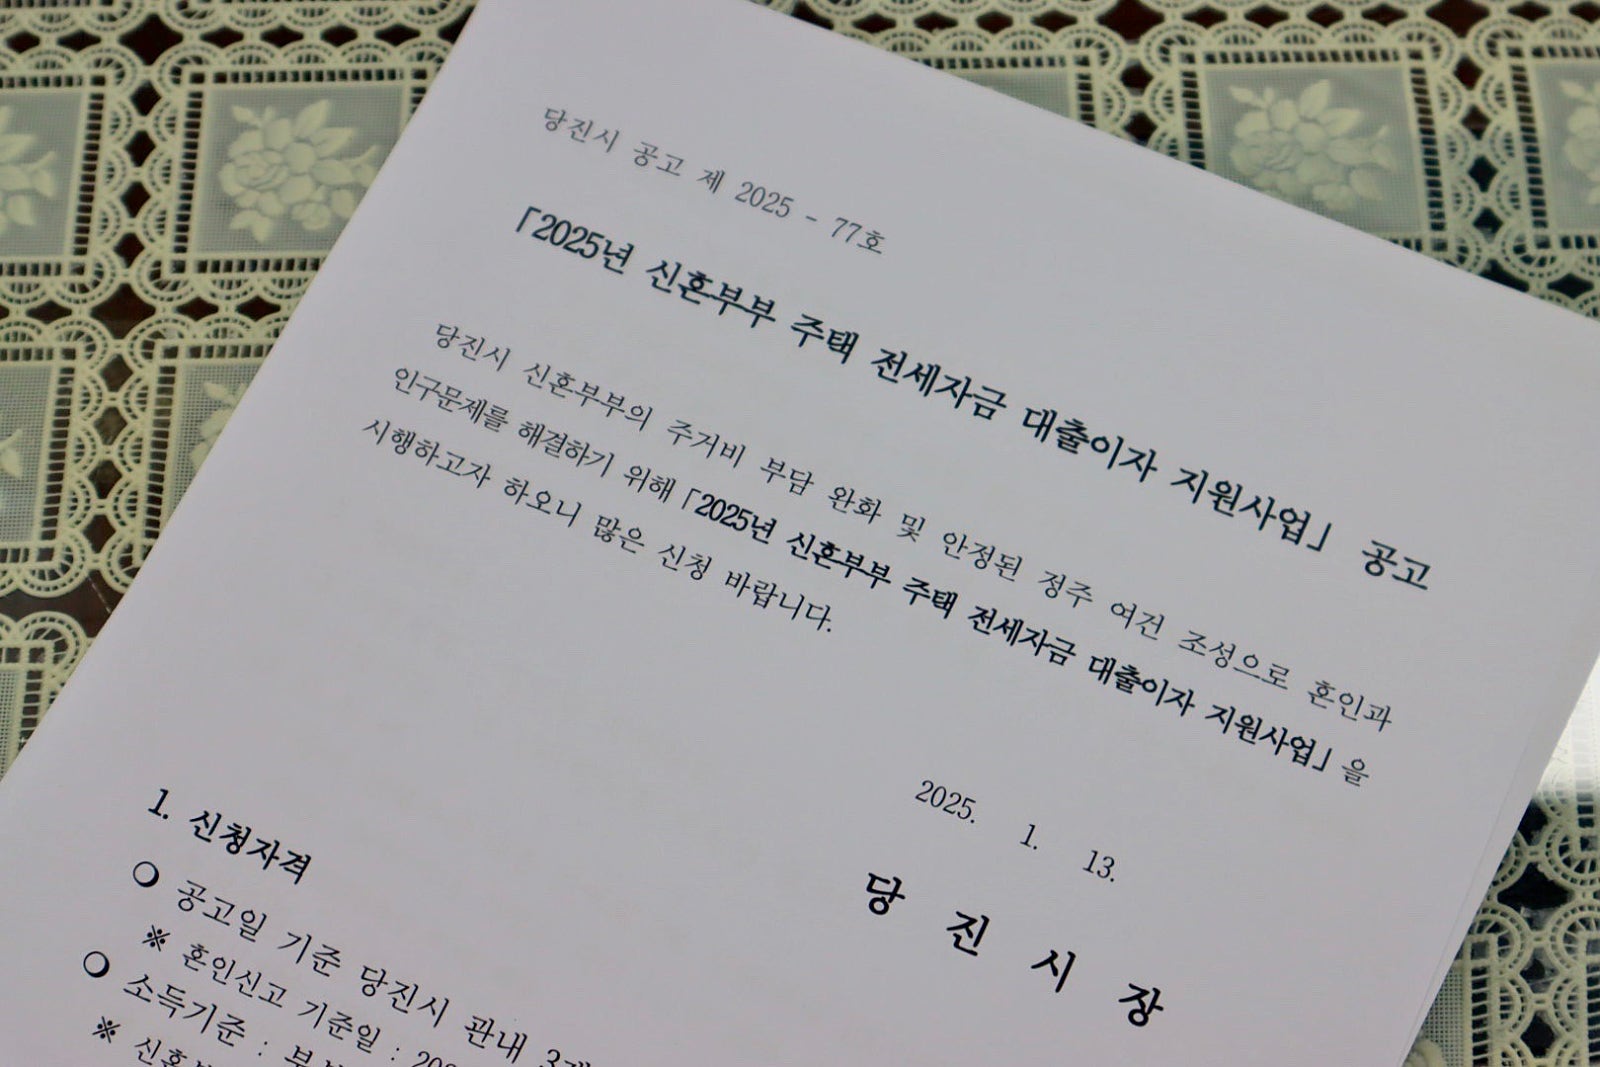 당진시 공고 제 2025 - 77호
「2025년 신혼부부 주택 전세자금 대출이자 지원사업」 공고
당진시 신혼부부의 주거비 부담 완화 및 안정된 정주 여건 조성으로 혼인과
인구문제를 해결하기 위해 「2025년 신혼부부 주택 전세자금 대출이자 지원사업」을
시행하고자 하오니 많은 신청 바랍니다.
2025. 1. 13.
당 진 시 장
1. 신청자격
❍ 공고일 기준 당진시 관내 3개
※ 혼인신고 기준일 : 202
❍ 소득기준 : 부
※ 신혼